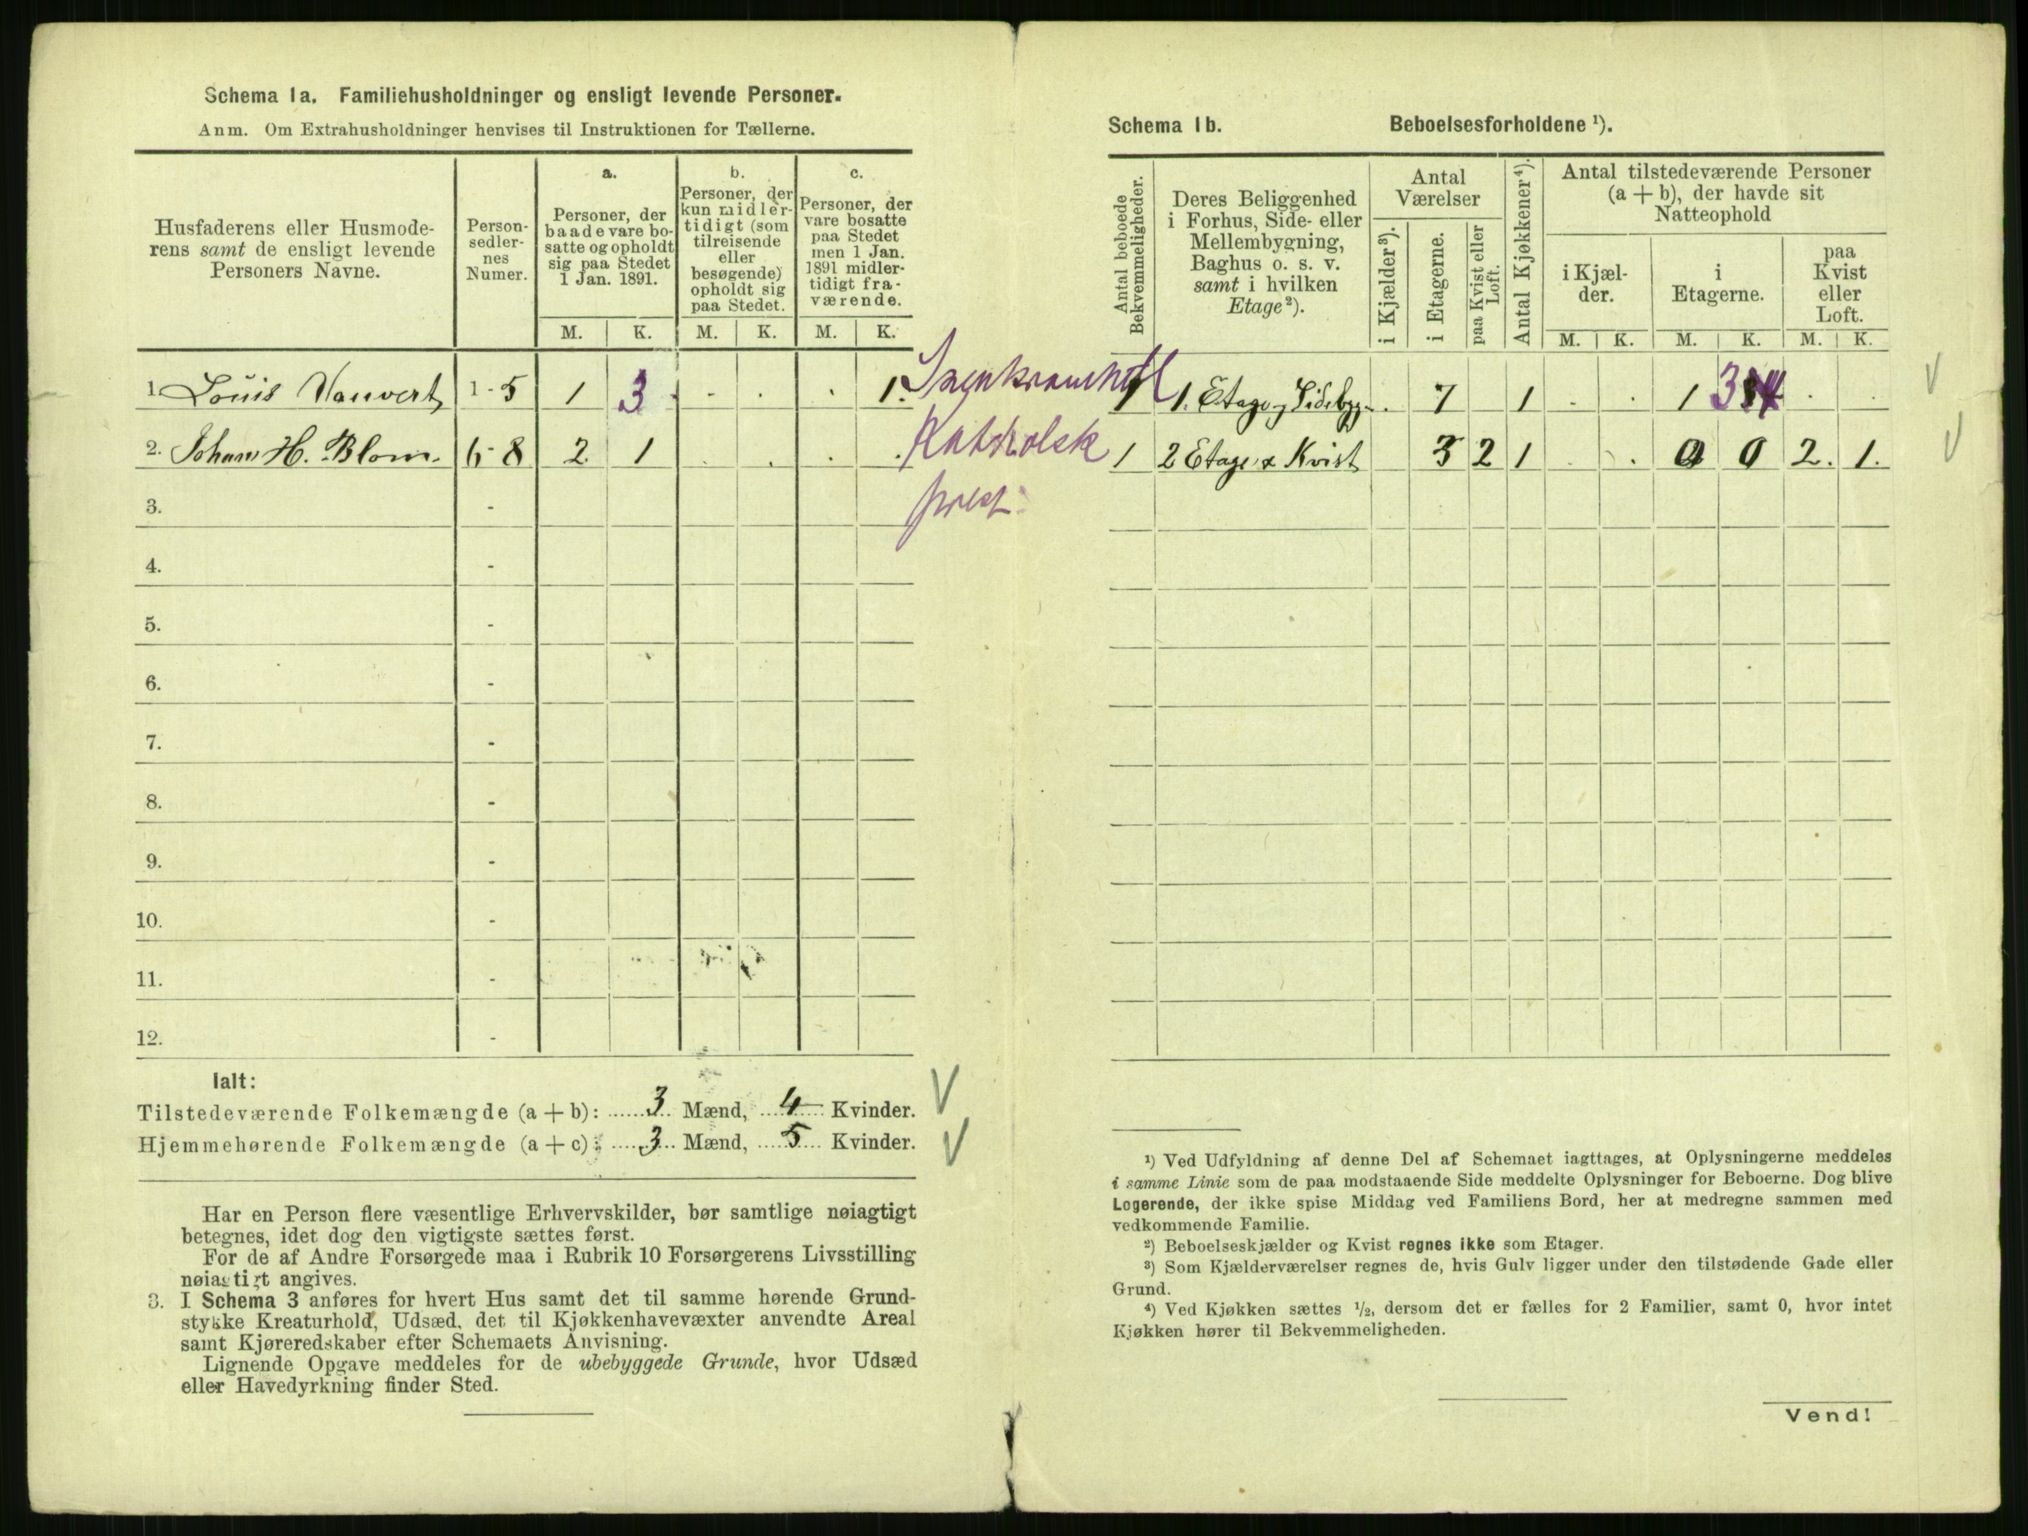 Schema 1a. Familiehusholdninger og ensligt levende Personer.
Anm. Om Extrahusholdninger henvises til Instruktionen for Tællerne.
Husfaderens eller Husmode-
rens samt de ensligt levende
Personers Navne.
Person-
sedler-
nes
Numer.
a.
Personer, der
baade vare bo-
satte og opholdt
sig paa Stedet
1 Jan. 1891.
b.
Personer, der
kun midler-
tidigt (som
tilreisende
eller
besøgende)
opholdt sig
paa Stedet.
c.
Personer, der
vare bosatte
paa Stedet
men 1 Jan.
1891 midler-
tidigt fra-
værende.
M. K. M. K. M. K.
1. Louis Vauvert 1-5 1 3 . . . 1.
2. Johan H. Blom. 6-8 2 1 . . . .
Katholsk
prest.
3. -
4. -
5. -
6. -
7. -
8. -
9. -
10. -
11. -
12. -
Ialt:
Tilstedeværende Folkemængde (a + b): 3 Mænd, 4 Kvinder.
Hjemmehørende Folkemængde (a + c): 3 Mænd, 5 Kvinder.
Har en Person flere væsentlige Erhvervskilder, bør samtlige nøiagtigt
betegnes, idet dog den vigtigste sættes først.
For de af Andre Forsørgede maa i Rubrik 10 Forsørgerens Livsstilling
nøiagtigt angives.
3. I Schema 3 anføres for hvert Hus samt det til samme hørende Grund-
stykke Kreaturhold, Udsæd, det til Kjøkkenhavevæxter anvendte Areal
samt Kjøreredskaber efter Schemaets Anvisning.
Lignende Opgave meddeles for de ubebyggede Grunde, hvor Udsæd
eller Havedyrkning finder Sted.
Schema 1b. Beboelsesforholdene ¹).
Antal beboede
Bekvemmeligheder.
Deres Beliggenhed
i Forhus, Side- eller
Mellembygning,
Baghus o. s. v.
samt i hvilken
Etage²).
Antal
Værelser
i Kjælder³).
i Etagerne.
paa Kvist eller
Loft.
Antal Kjøkkener⁴).
Antal tilstedeværende Personer
(a + b), der havde sit
Natteophold
i Kjæl-
der.
i
Etagerne.
paa
Kvist
eller
Loft.
M. K. M. K. M. K.
1 1. Etage og Sidebygn. . 7 1 . . 1 3 . .
1 2 Etage & Kvist 3 2 1 . . 0 0 2. 1.
¹) Ved Udfyldning af denne Del af Schemaet iagttages, at Oplysningerne meddeles
i samme Linie som de paa modstaaende Side meddelte Oplysninger for Beboerne. Dog blive
Logerende, der ikke spise Middag ved Familiens Bord, her at medregne sammen med
vedkommende Familie.
²) Beboelseskjælder og Kvist regnes ikke som Etager.
³) Som Kjælderværelser regnes de, hvis Gulv ligger under den tilstødende Gade eller
Grund.
⁴) Ved Kjøkken sættes ½, dersom det er fælles for 2 Familier, samt 0, hvor intet
Kjøkken hører til Bekvemmeligheden.
Vend!